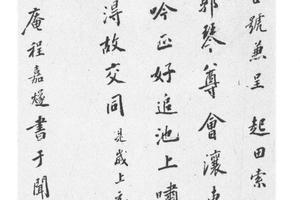 號兼呈起田索
琴尊會瀼東
吟正好追池上嘯
得故交同是歲上元
庵程嘉燧書于聞